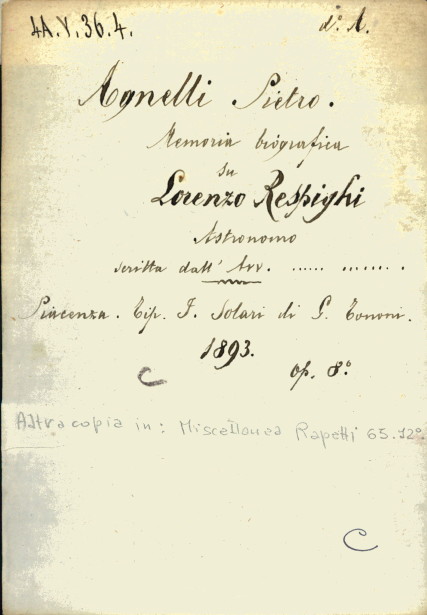 4A.Y.36.4. d.º A.
Agnelli Pietro.
Memoria biografica
su
Lorenzo Respighi
Astronomo
scritta dall' Avv. ...... ........
Piacenza. Tip. F. Solari di G. Tononi.
1893.
op. 8.º
C
Altra copia in: Miscellanea Rapetti 65.12º.
C